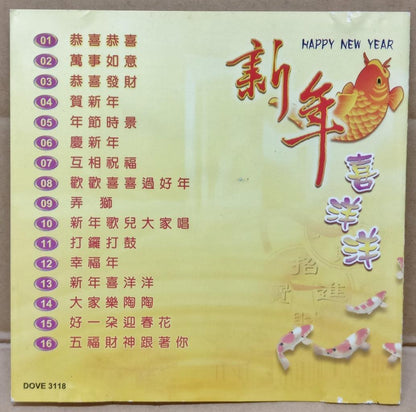 01 恭喜恭喜
02 萬事如意
03 恭喜發財
04 賀新年
05 年節時景
06 慶新年
07 互相祝福
08 歡歡喜喜過好年
09 弄 獅
10 新年歌兒大家唱
11 打鑼打鼓
12 幸福年
13 新年喜洋洋
14 大家樂陶陶
15 好一朵迎春花
16 五福財神跟著你
DOVE 3118
HAPPY NEW YEAR
新年
喜洋洋
招
財進